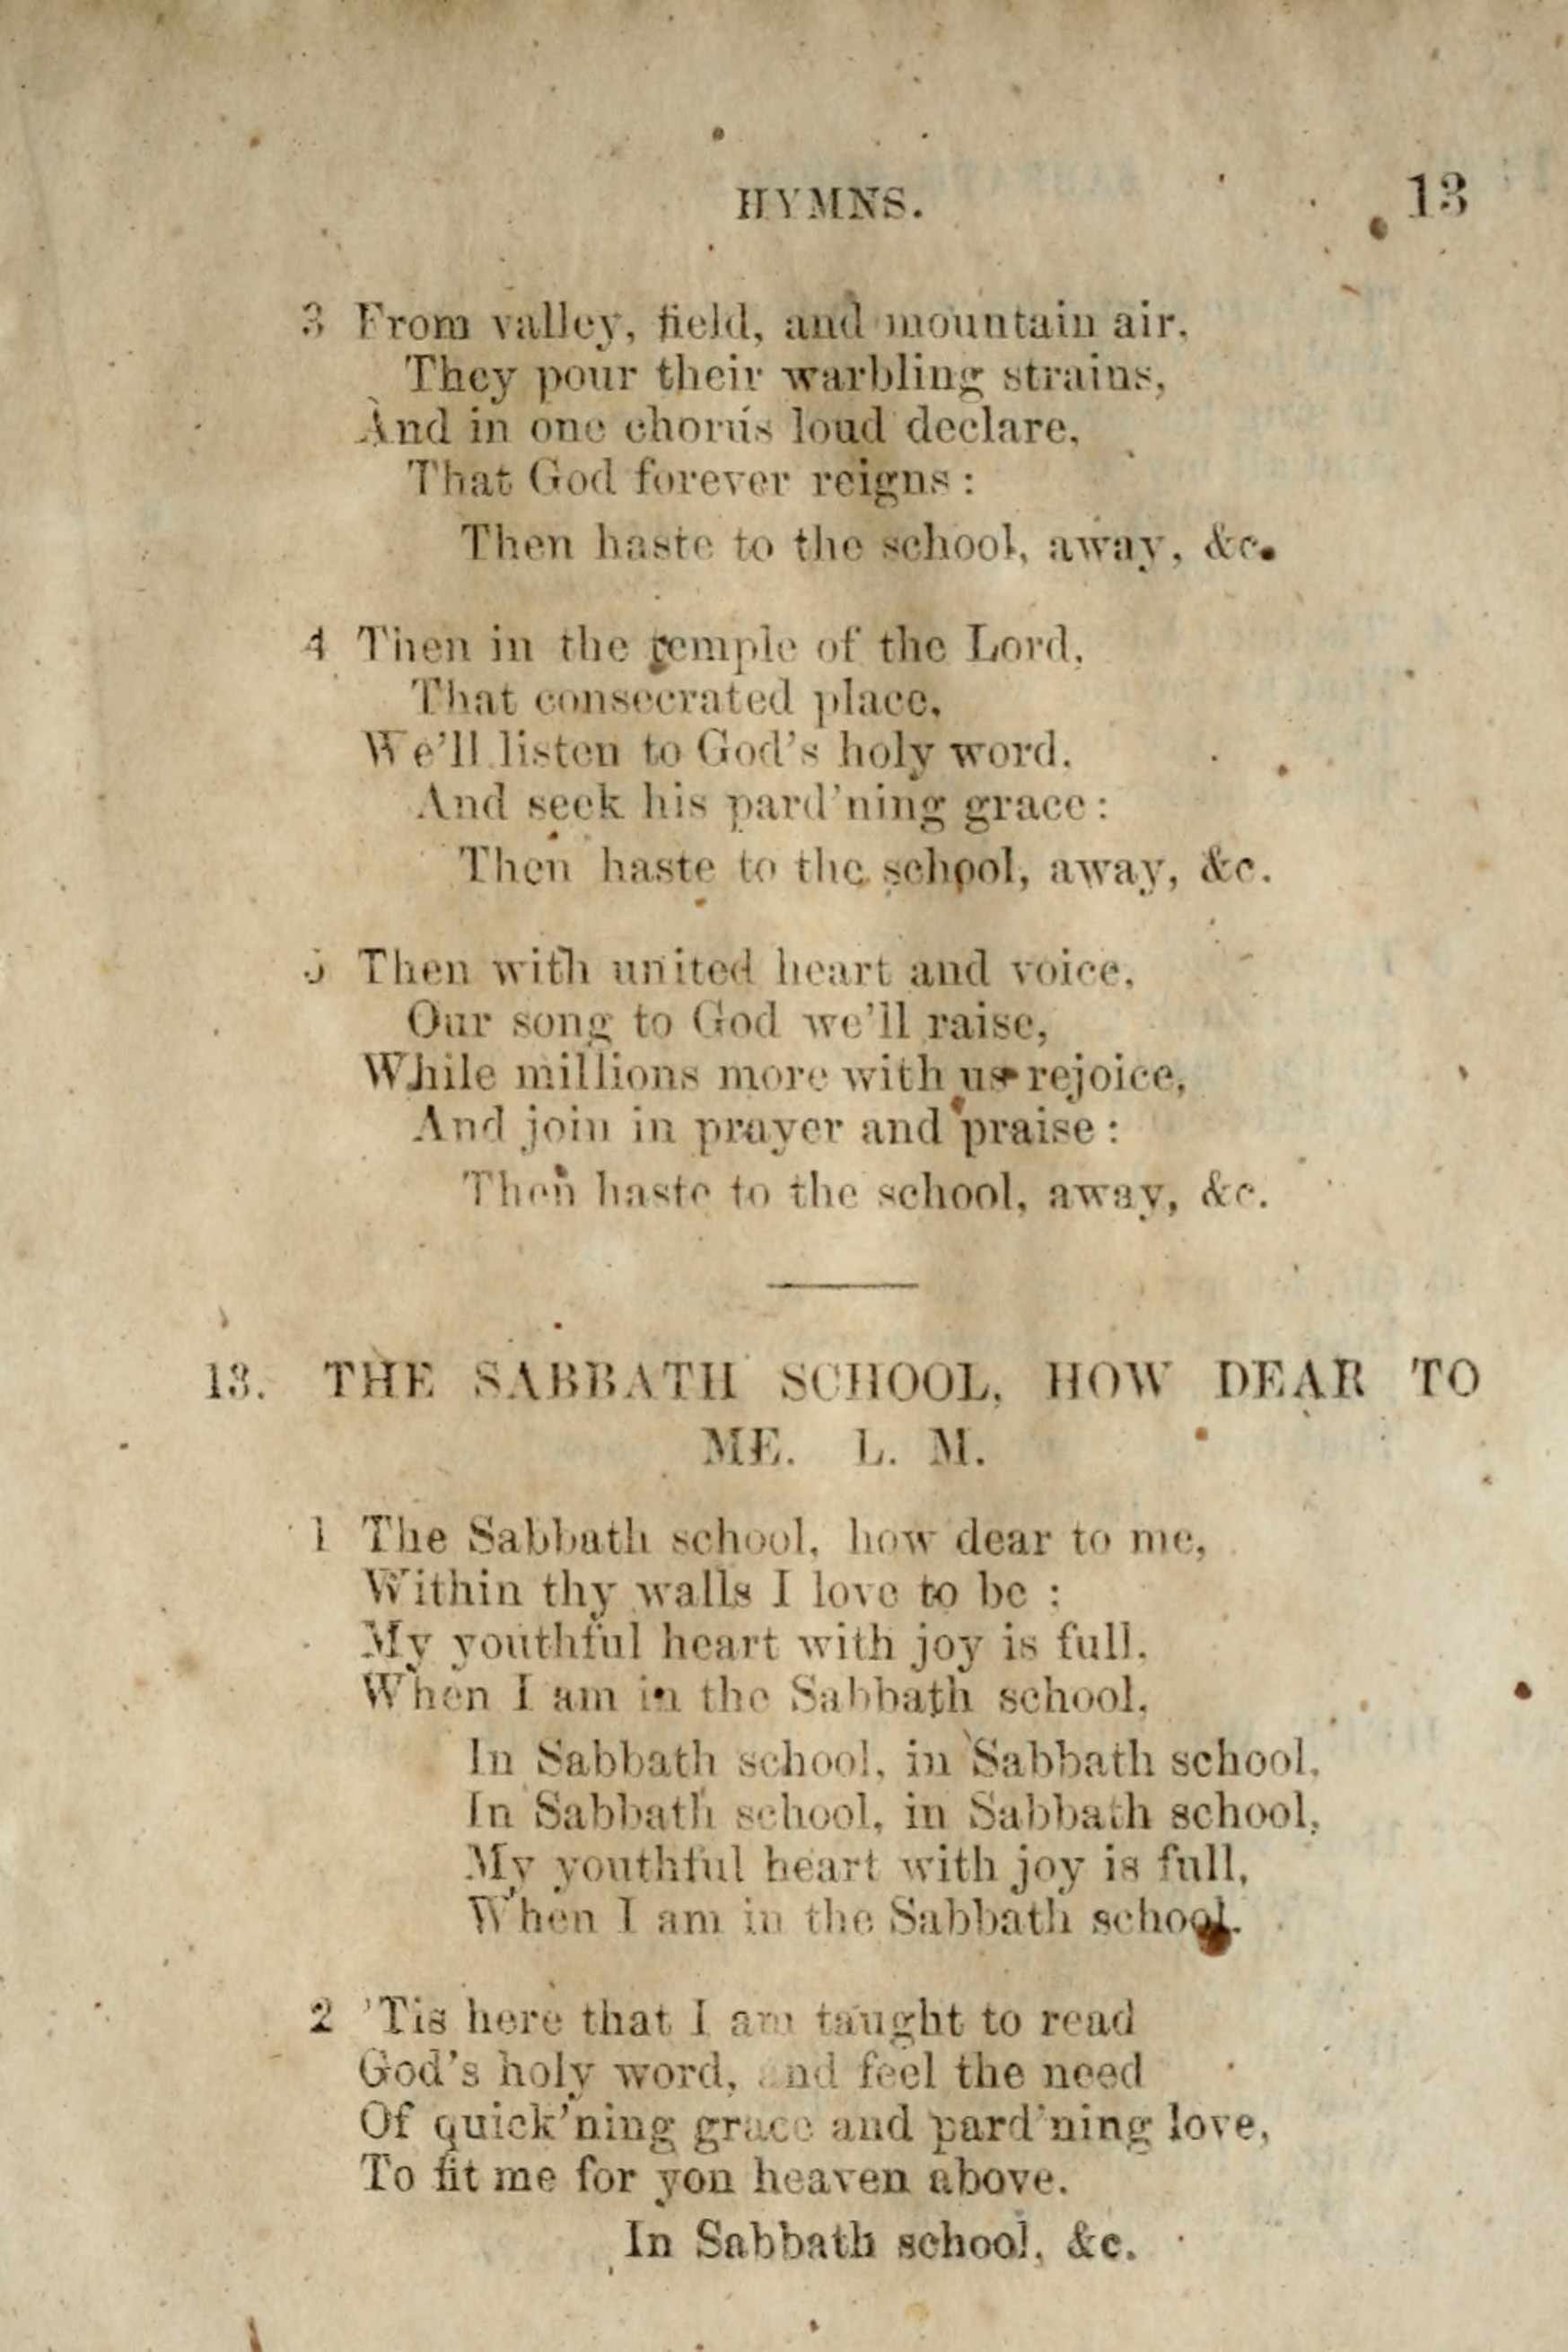 HYMNS. 13
3 From valley, field, and mountain air,
They pour their warbling strains,
And in one chorus loud declare,
That God forever reigns :
Then haste to the school, away, &c.
4 Then in the temple of the Lord,
That consecrated place,
We'll listen to God's holy word,
And seek his pard'ning grace :
Then haste to the school, away, &c.
5 Then with united heart and voice,
Our song to God we'll raise,
While millions more with us rejoice,
And join in prayer and praise :
Then haste to the school, away, &c.
13. THE SABBATH SCHOOL, HOW DEAR TO
ME. L. M.
1 The Sabbath school, how dear to me,
Within thy walls I love to be :
My youthful heart with joy is full,
When I am in the Sabbath school,
In Sabbath school, in Sabbath school,
In Sabbath school, in Sabbath school,
My youthful heart with joy is full,
When I am in the Sabbath school.
2 'Tis here that I am taught to read
God's holy word, and feel the need
Of quick'ning grace and pard'ning love,
To fit me for yon heaven above.
In Sabbath school, &c.